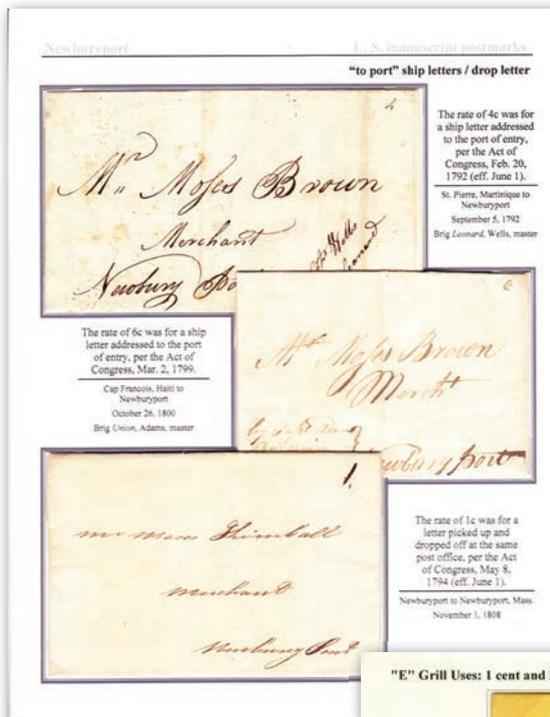 Newburyport
U. S. manuscript postmarks
"to port" ship letters / drop letter
4
Mr. Moses Brown
Merchant
Newbury Po
Wells
Leonard
The rate of 4c was for
a ship letter addressed
to the port of entry,
per the Act of
Congress, Feb. 20,
1792 (eff. June 1).
St. Pierre, Martinique to
Newburyport
September 5, 1792
Brig Leonard, Wells, master
6
Mr Moses Brown
Mercht
ewbury port
The rate of 6c was for a ship
letter addressed to the port
of entry, per the Act of
Congress, Mar. 2, 1799.
Cap Francois, Haiti to
Newburyport
October 26, 1800
Brig Union, Adams, master
1
Mr Moses Kimball
Merchant
Newbury Port
The rate of 1c was for a
letter picked up and
dropped off at the same
post office, per the Act
of Congress, May 8,
1794 (eff. June 1).
Newburyport to Newburyport, Mass.
November 1, 1808
"E" Grill Uses: 1 cent and